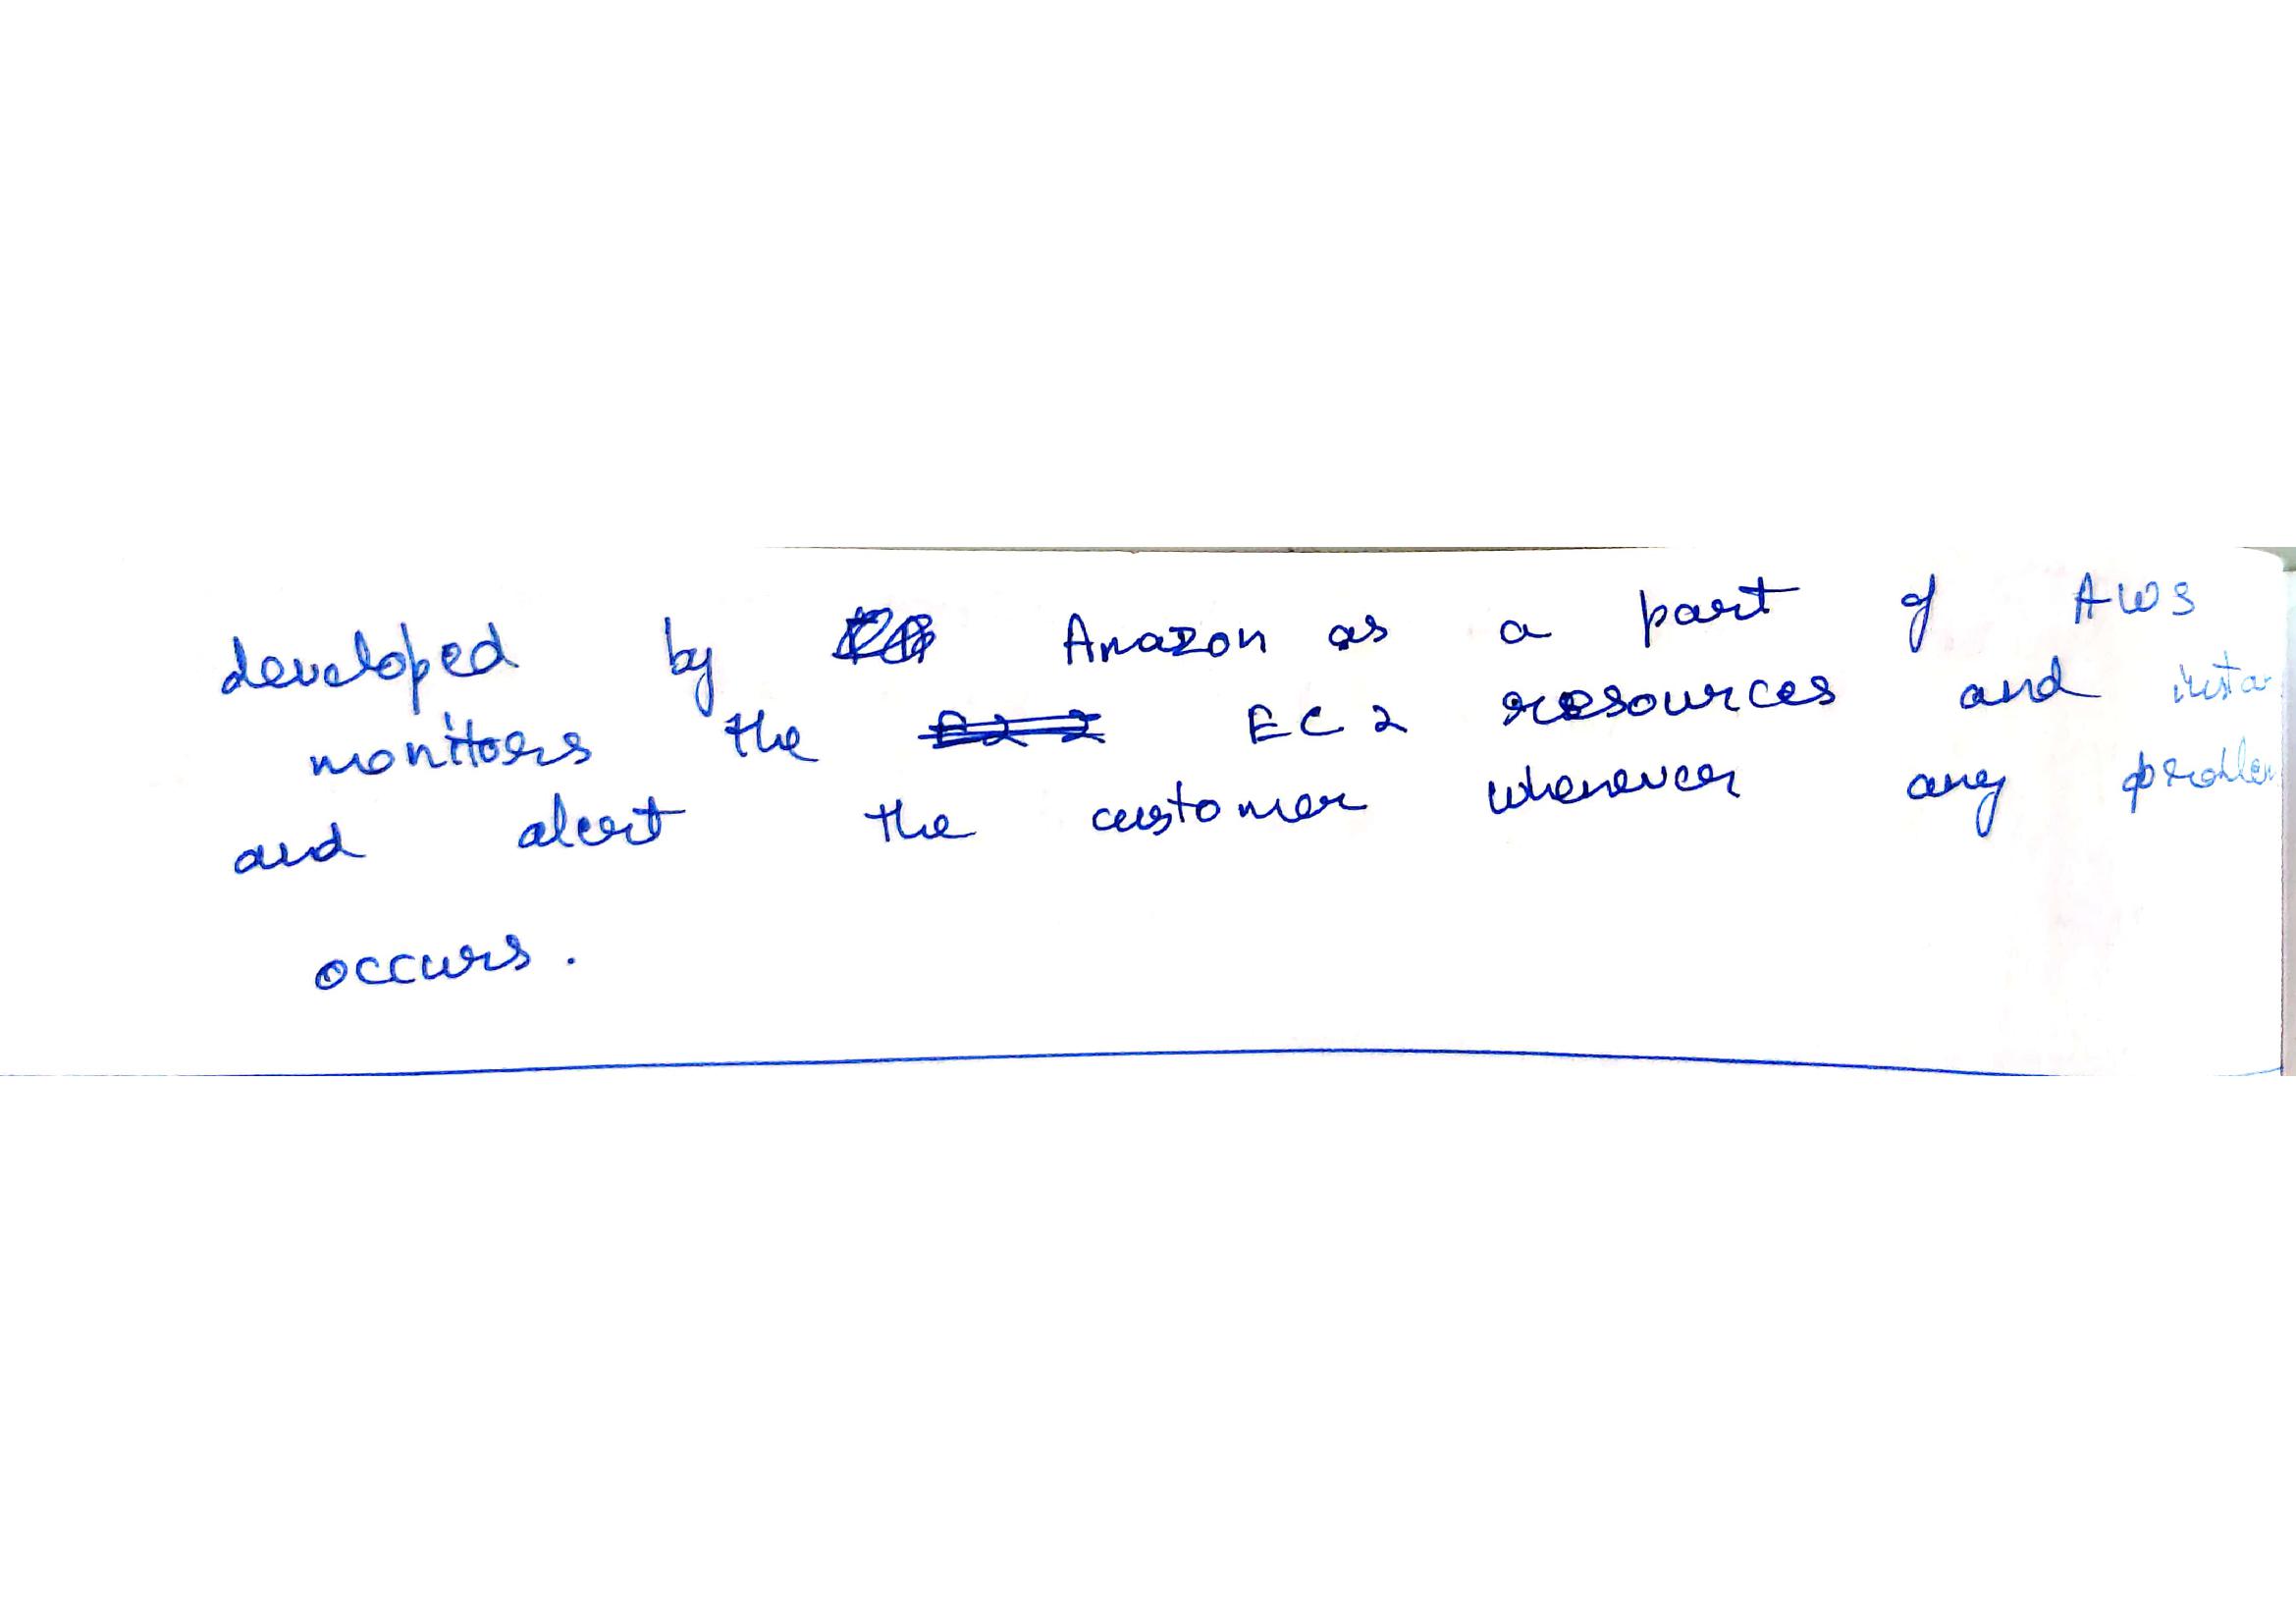 developed by Amazon as a part of AWS
monitors the EC2 resources and insta
and alert the customer whenever any problem
occurs.